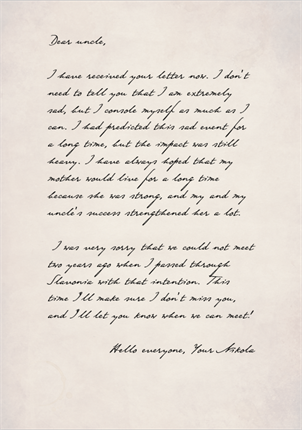 Dear uncle,
I have received your letter now. I don't
need to tell you that I am extremely
sad, but I console myself as much as I
can. I had predicted this sad event for
a long time, but the impact was still
heavy. I have always hoped that my
mother would live for a long time
because she was strong, and my and my
uncle's success strengthened her a lot.
I was very sorry that we could not meet
two years ago when I passed through
Slavonia with that intention. This
time I'll make sure I don't miss you,
and I'll let you know when we can meet!
Hello everyone, Your Nikola